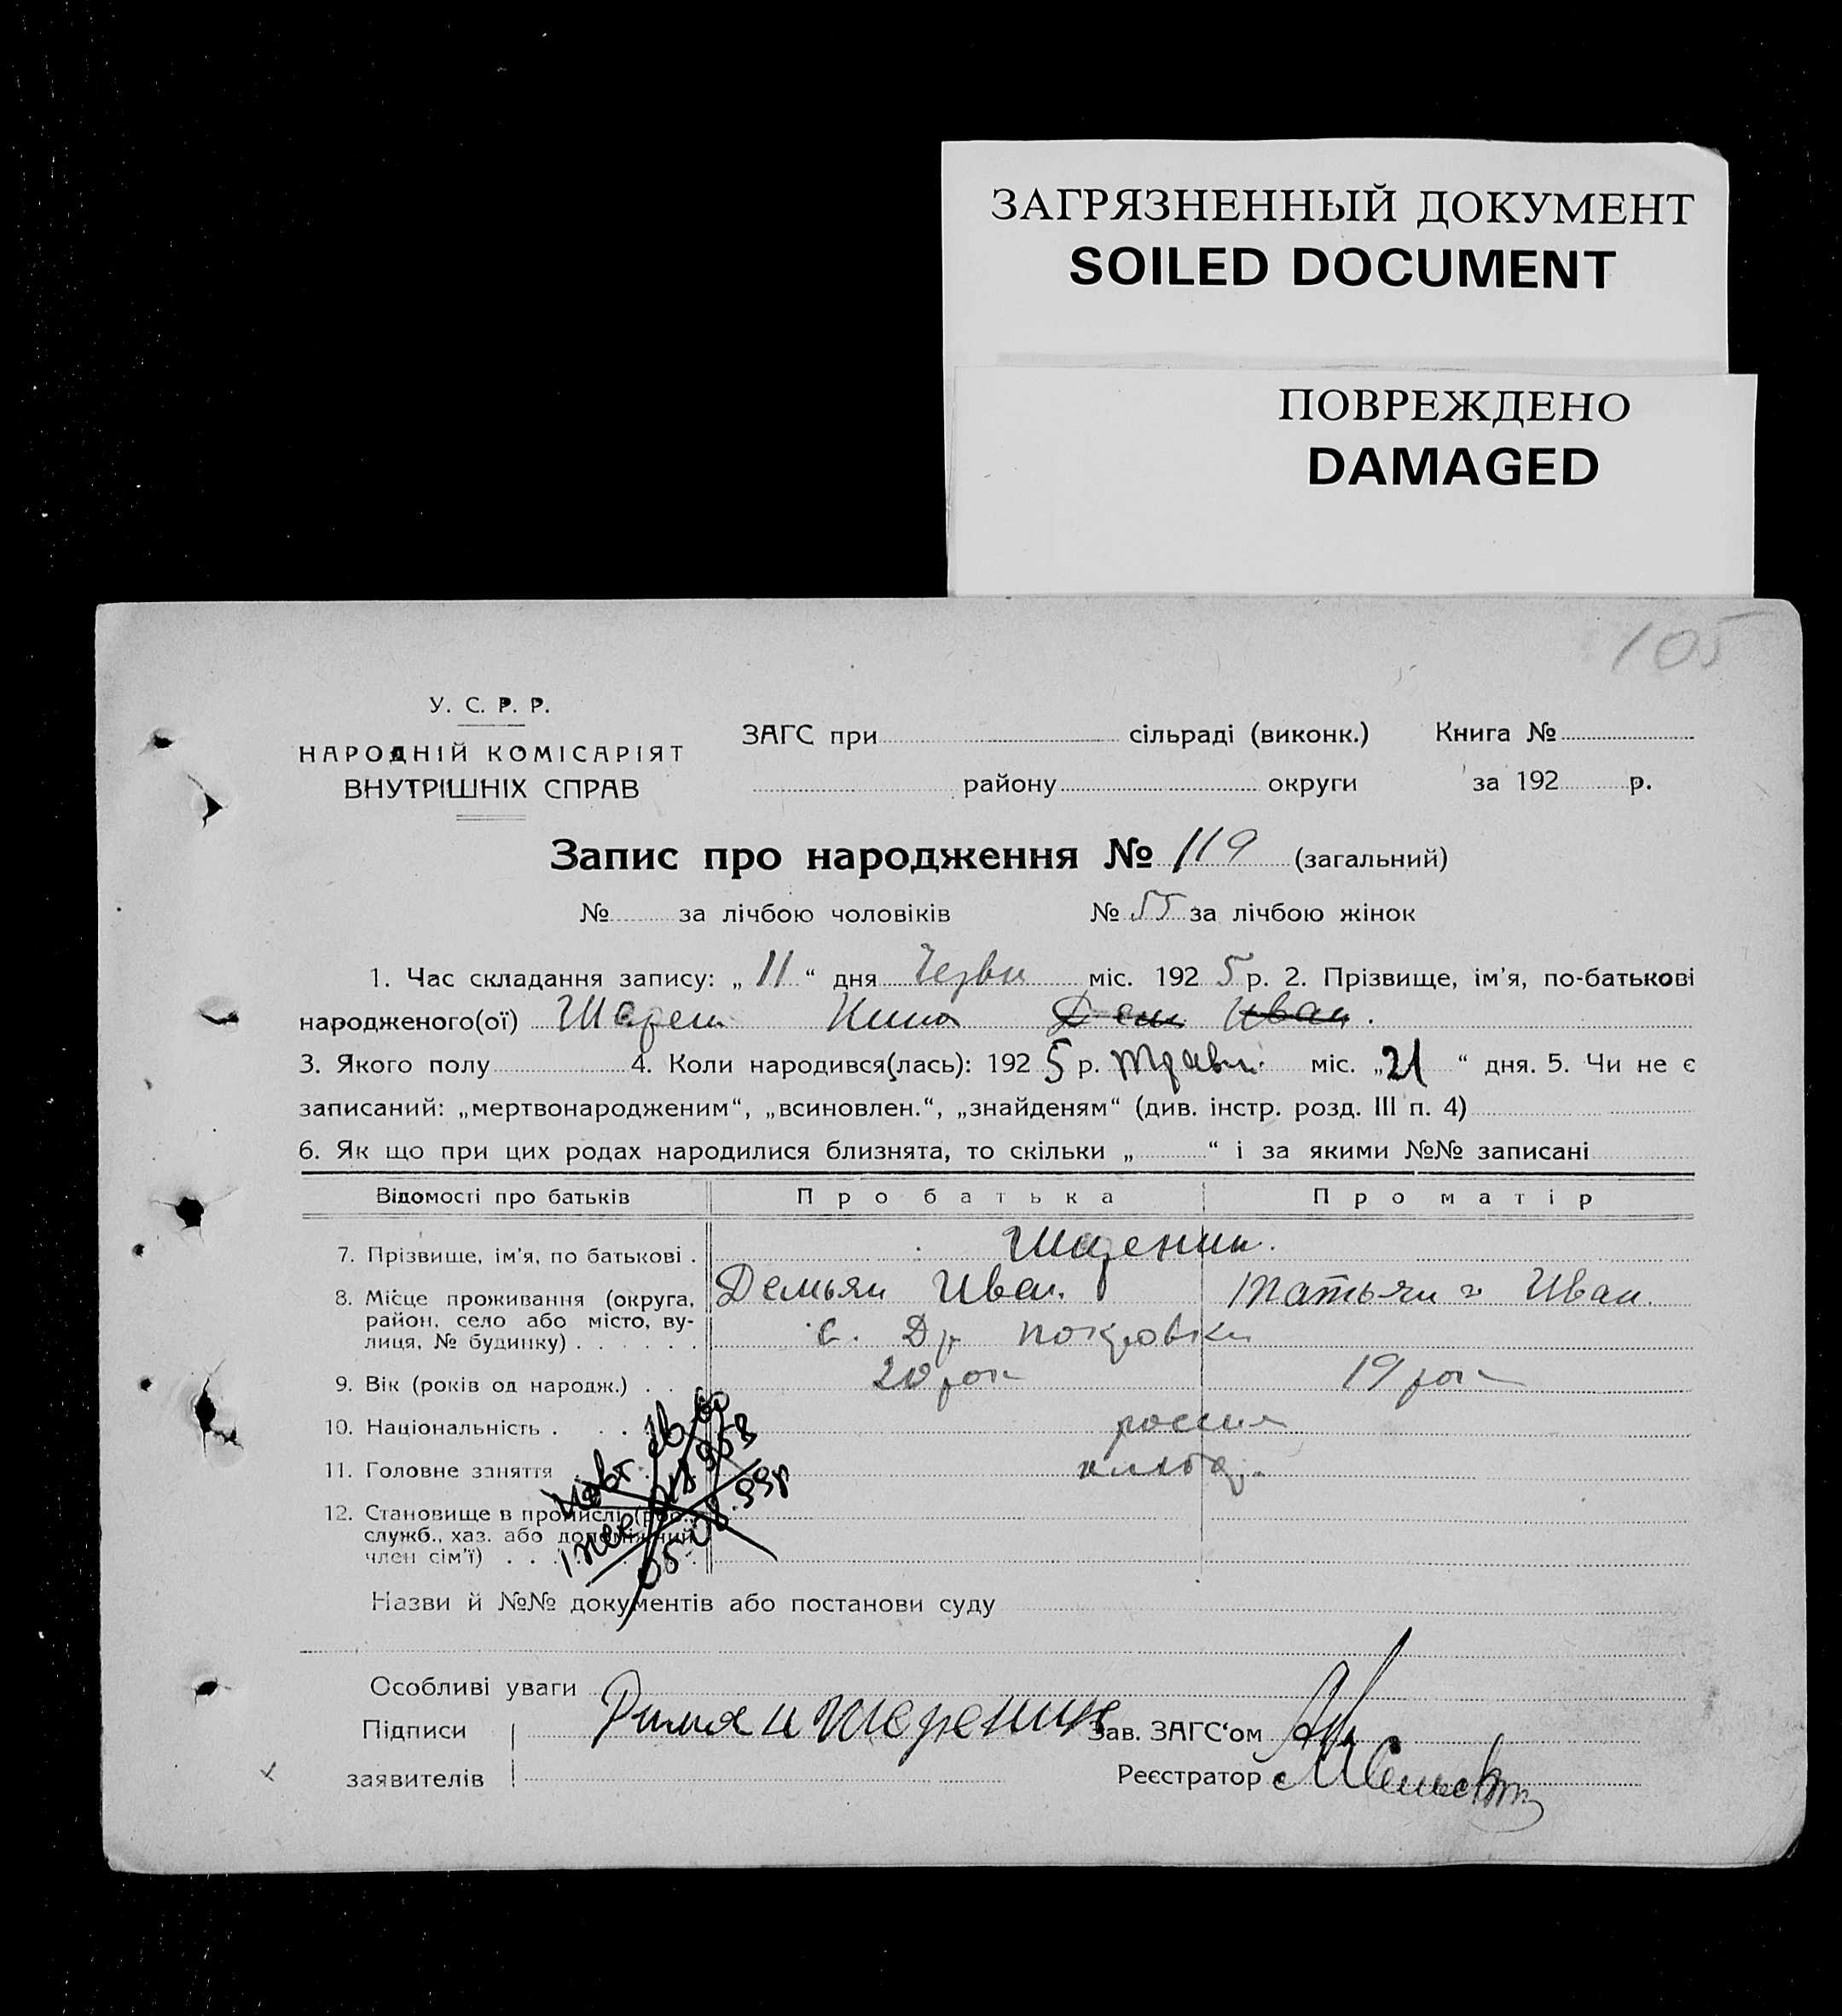 ЗАГРЯЗНЕННЫЙ ДОКУМЕНТ
SOILED DOCUMENT
ПОВРЕЖДЕНО
DAMAGED
105
У. С. Р. Р.
НАРОДНІЙ КОМІСАРІЯТ
ВНУТРІШНІХ СПРАВ
ЗАГС при сільраді (виконк.) Книга №
району округи за 192 р.
Запис про народження № 119 (загальний)
№ за лічбою чоловіків № 55 за лічбою жінок
1. Час складання запису: „ 11 “ дня Червн міс. 192 5 р. 2. Прізвище, ім'я, по-батькові
народженого(ої) Нина Дем Иван.
3. Якого полу 4. Коли народився(лась): 192 5 р. Травн. міс. „21 “ дня. 5. Чи не є
записаний: „мертвонародженим“, „всиновлен.“, „знайденям“ (див. інстр. розд. III п. 4)
6. Як що при цих родах народилися близнята, то скільки „ “ і за якими №№ записані
Відомості про батьків Про батька Про матір
7. Прізвище, ім'я, по батькові .
8. Місце проживання (округа, Демьян Иван. Татьяна Иван.
район, село або місто, ву-
лиця, № будинку) . . . . . . с. Др покровки
9. Вік (років од народж.) . . 20 рок 19 рок
10. Національність .
11. Головне заняття
12. Становище в промислі (роб.,
служб., хаз. або допоміжний
член сім'ї) . . .
Назви й №№ документів або постанови суду
Особливі уваги
Підписи Зав. ЗАГС'ом
заявителів Реєстратор